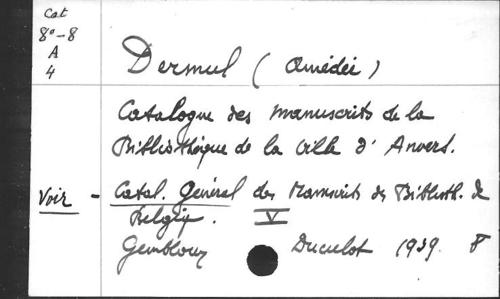 Cat
8°-8
A
4
Dermul (Amédée)
Catalogue des manuscrits de la
Bibliothèque de la ville d'Anvers.
Voir - Catal. Général des Manuscrits des Biblioth. de
Belgiq. V
Gembloux Duculot 1939. 8